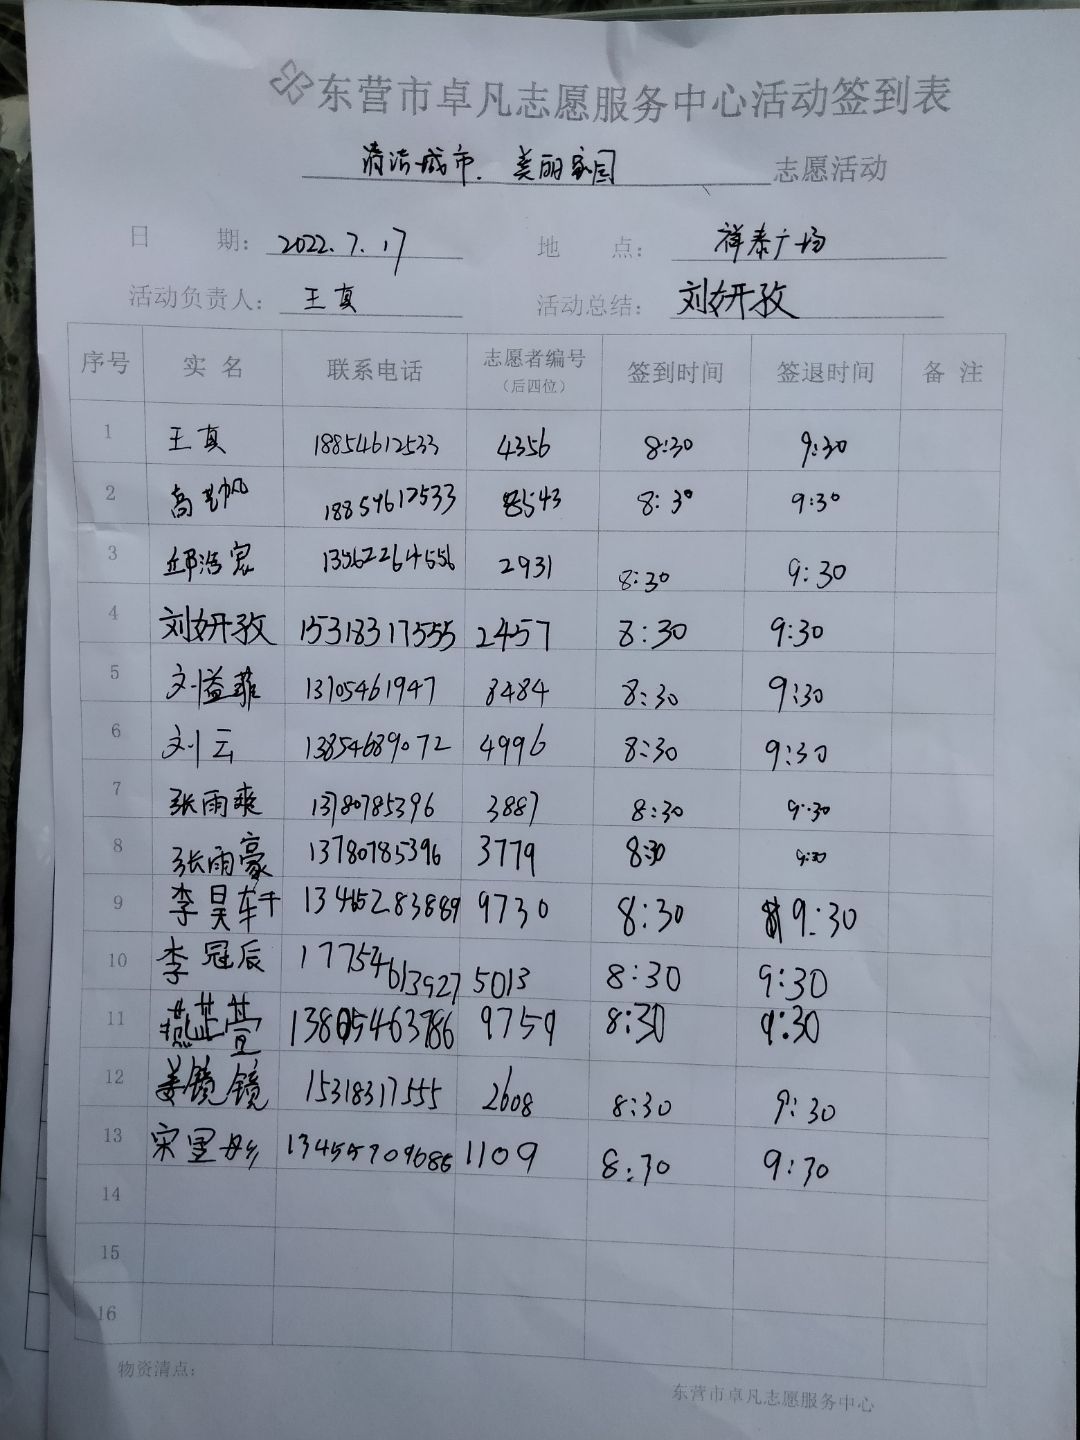 东营市卓凡志愿服务中心活动签到表
清洁城市.美丽家园 志愿活动
日 期: 2022.7.17 地 点: 祥泰广场
活动负责人: 王真 活动总结: 刘妍孜
序号 实名 联系电话 志愿者编号(后四位) 签到时间 签退时间 备注
1 王真 18854612533 4356 8:30 9:30
2 高 帆 18854612533 8543 8:30 9:30
3 邱浩宸 13562264556 2931 8:30 9:30
4 刘妍孜 15318317555 2457 8:30 9:30
5 刘益菲 13705461947 8484 8:30 9:30
6 刘云 13854689072 4996 8:30 9:30
7 张雨爽 13780785396 3887 8:30 9:30
8 张雨豪 13780785396 3779 8:30 9:30
9 李昊轩 13465283889 9730 8:30 9:30
10 李冠辰 17754613927 5013 8:30 9:30
11 燕芷萱 13805463786 9759 8:30 9:30
12 姜镜镜 15318317555 2608 8:30 9:30
13 宋 13455709686 1109 8:30 9:30
14
15
16
物资清点:
东营市卓凡志愿服务中心